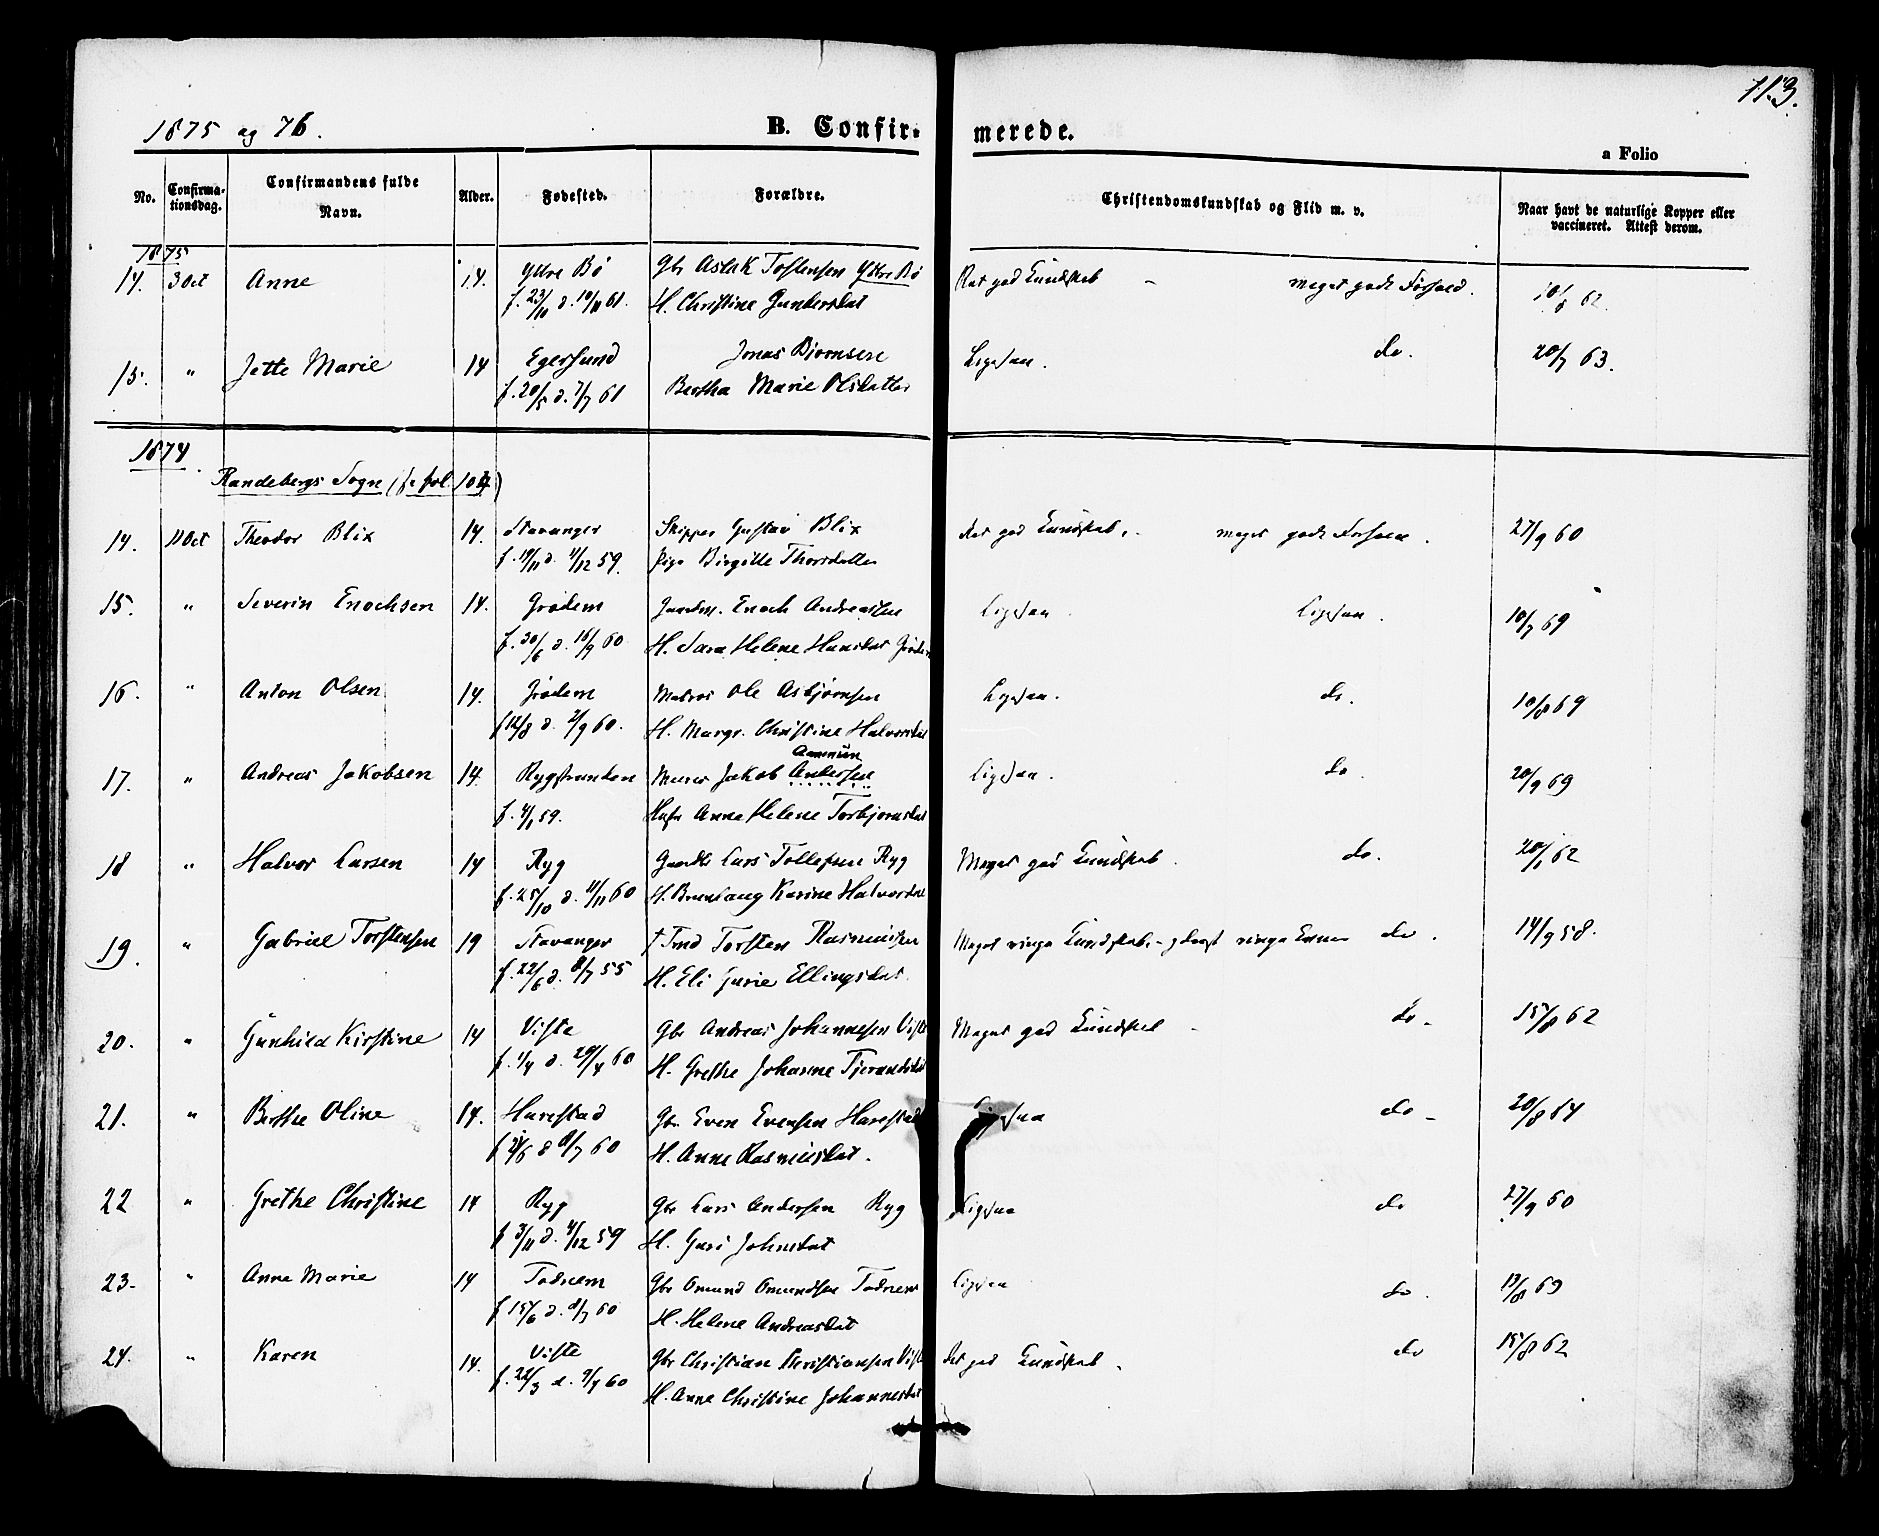 113.
1875 og 76.
B. Confirmerede.
a Folio
No. Confirmationsdag. Confirmandens fulde Navn. Alder. Fødested. Forældre. Christendomskundskab og Flid m. v. Naar havt de naturlige Kopper eller vaccineret. Attest derom.
1875
14. 3 Oct Anne 14. Ydre Bø Gbr Aslak Torstensen Ydre Bø Ret god Kundskab - meget godt Forhold. 10/8 62.
f. 23/10 d. 10/11 61. H. Christine Gundersdat
15. " Jette Marie 14 Egersund Jonas Bjørnsen Ligesaa. do. 20/7 63.
f. 20/5 d. 7/7 61 Bertha Marie Olsdatter
1874
Randebergs Sogn (fr fol. 104)
14. 11 Oct Theodor Blix 14. Stavanger Skipper Gustav Blix Ret god Kundskab, meget godt Forhold. 27/9 60
f. 19/11 d. 4/12 59. Pige Birgitte Thorsdatter
15. " Severin Enochsen 14. Grødem Gaardm. Enoch Andreassen Ligesaa Ligesaa. 10/7 69
f. 30/6 d. 16/9 60 H. Sara Helene Hansdat Grødem
16. " Anton Olsen 14. Grødem Matros Ole Asbjørnsen Ligesaa. do. 10/8 69
f 12/8 d. 2/9 60. H. Margr. Christine Halvorsdat
Aamundsen
17. " Andreas Jakobsen 14. Rygstranden Murer Jakob Andersen Ligesaa. do. 20/9 69
f. 4/1 59. Hustr Anne Helene Torbjørnsdat
18 " Halvor Larsen 14 Ryg Gaardbr Lars Tollefsen Ryg Meget god Kundskab. do. 20/1 62
f. 25/10 d. 11/11 60 H. Brunlaug Karine Halvorsdat
19. " Gabriel Torstensen 19 Stavanger † Tmd Torsten Rasmussen Meget ringe Kundskab, - yderst ringe Evner do. 14/9 58.
f. 22/6 d. 8/7 55 H. Eli Gurie Ellingsdat.
20. " Gunhild Kirstine 14 Viste Gbr Andreas Johannesen Viste Meget god Kundskab - do - 15/8 62
f. 1/4 d. 29/4 60 H. Grethe Johanne Tjerandsdat
21. " Berthe Oline 14. Harestad Gbr. Even Evensen Harestad Ligesaa do - 20/8 64
8/7 60 H. Anne Rasmusdat.
22 " Grethe Christine 14 Ryg Gbr Lars Andersen Ryg Ligesaa do 27/9 60
f 3/11 d. 4/12 59 H. Guri Johnsdat
23. " Anne Marie 14 Todnem Gbr Omund Omundsen Todnem Ligesaa do. 13/8 69
f 15/6 d. 8/7 60 H. Helene Andreasdat
24. " Karen 14. Viste Gbr Christian Christiansen Viste Ret god Kundskab. do 15/8 62
f. 22/3 d. 9/4 60 H. Anne Christine Johannesdat